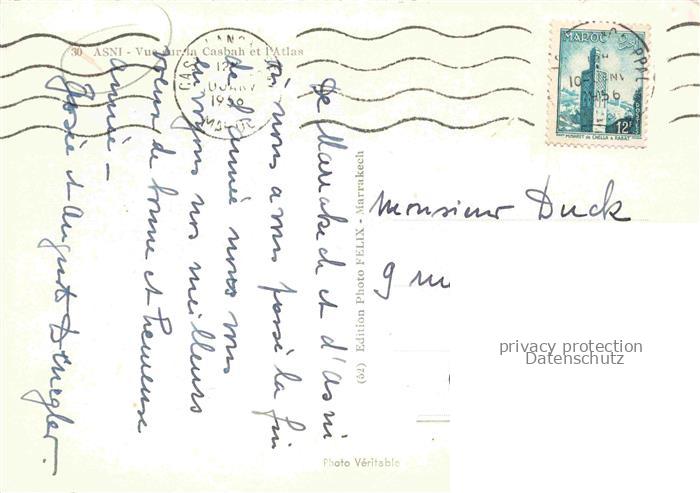 30 ASNI - Vue sur la Casbah et l'Atlas
De Marrakech et d'Asni
où nous avons passé la fin
de l'année nous vous
envoyons nos meilleurs
voeux de bonne et heureuse
année -
Josée et Auguste
(52) Edition Photo FELIX - Marrakech
Photo Véritable
MAROC
12F
MINARET DE CHELLA A RABAT
1956
MAROC
10
1956
Monsieur Duck
9
privacy protection
Datenschutz